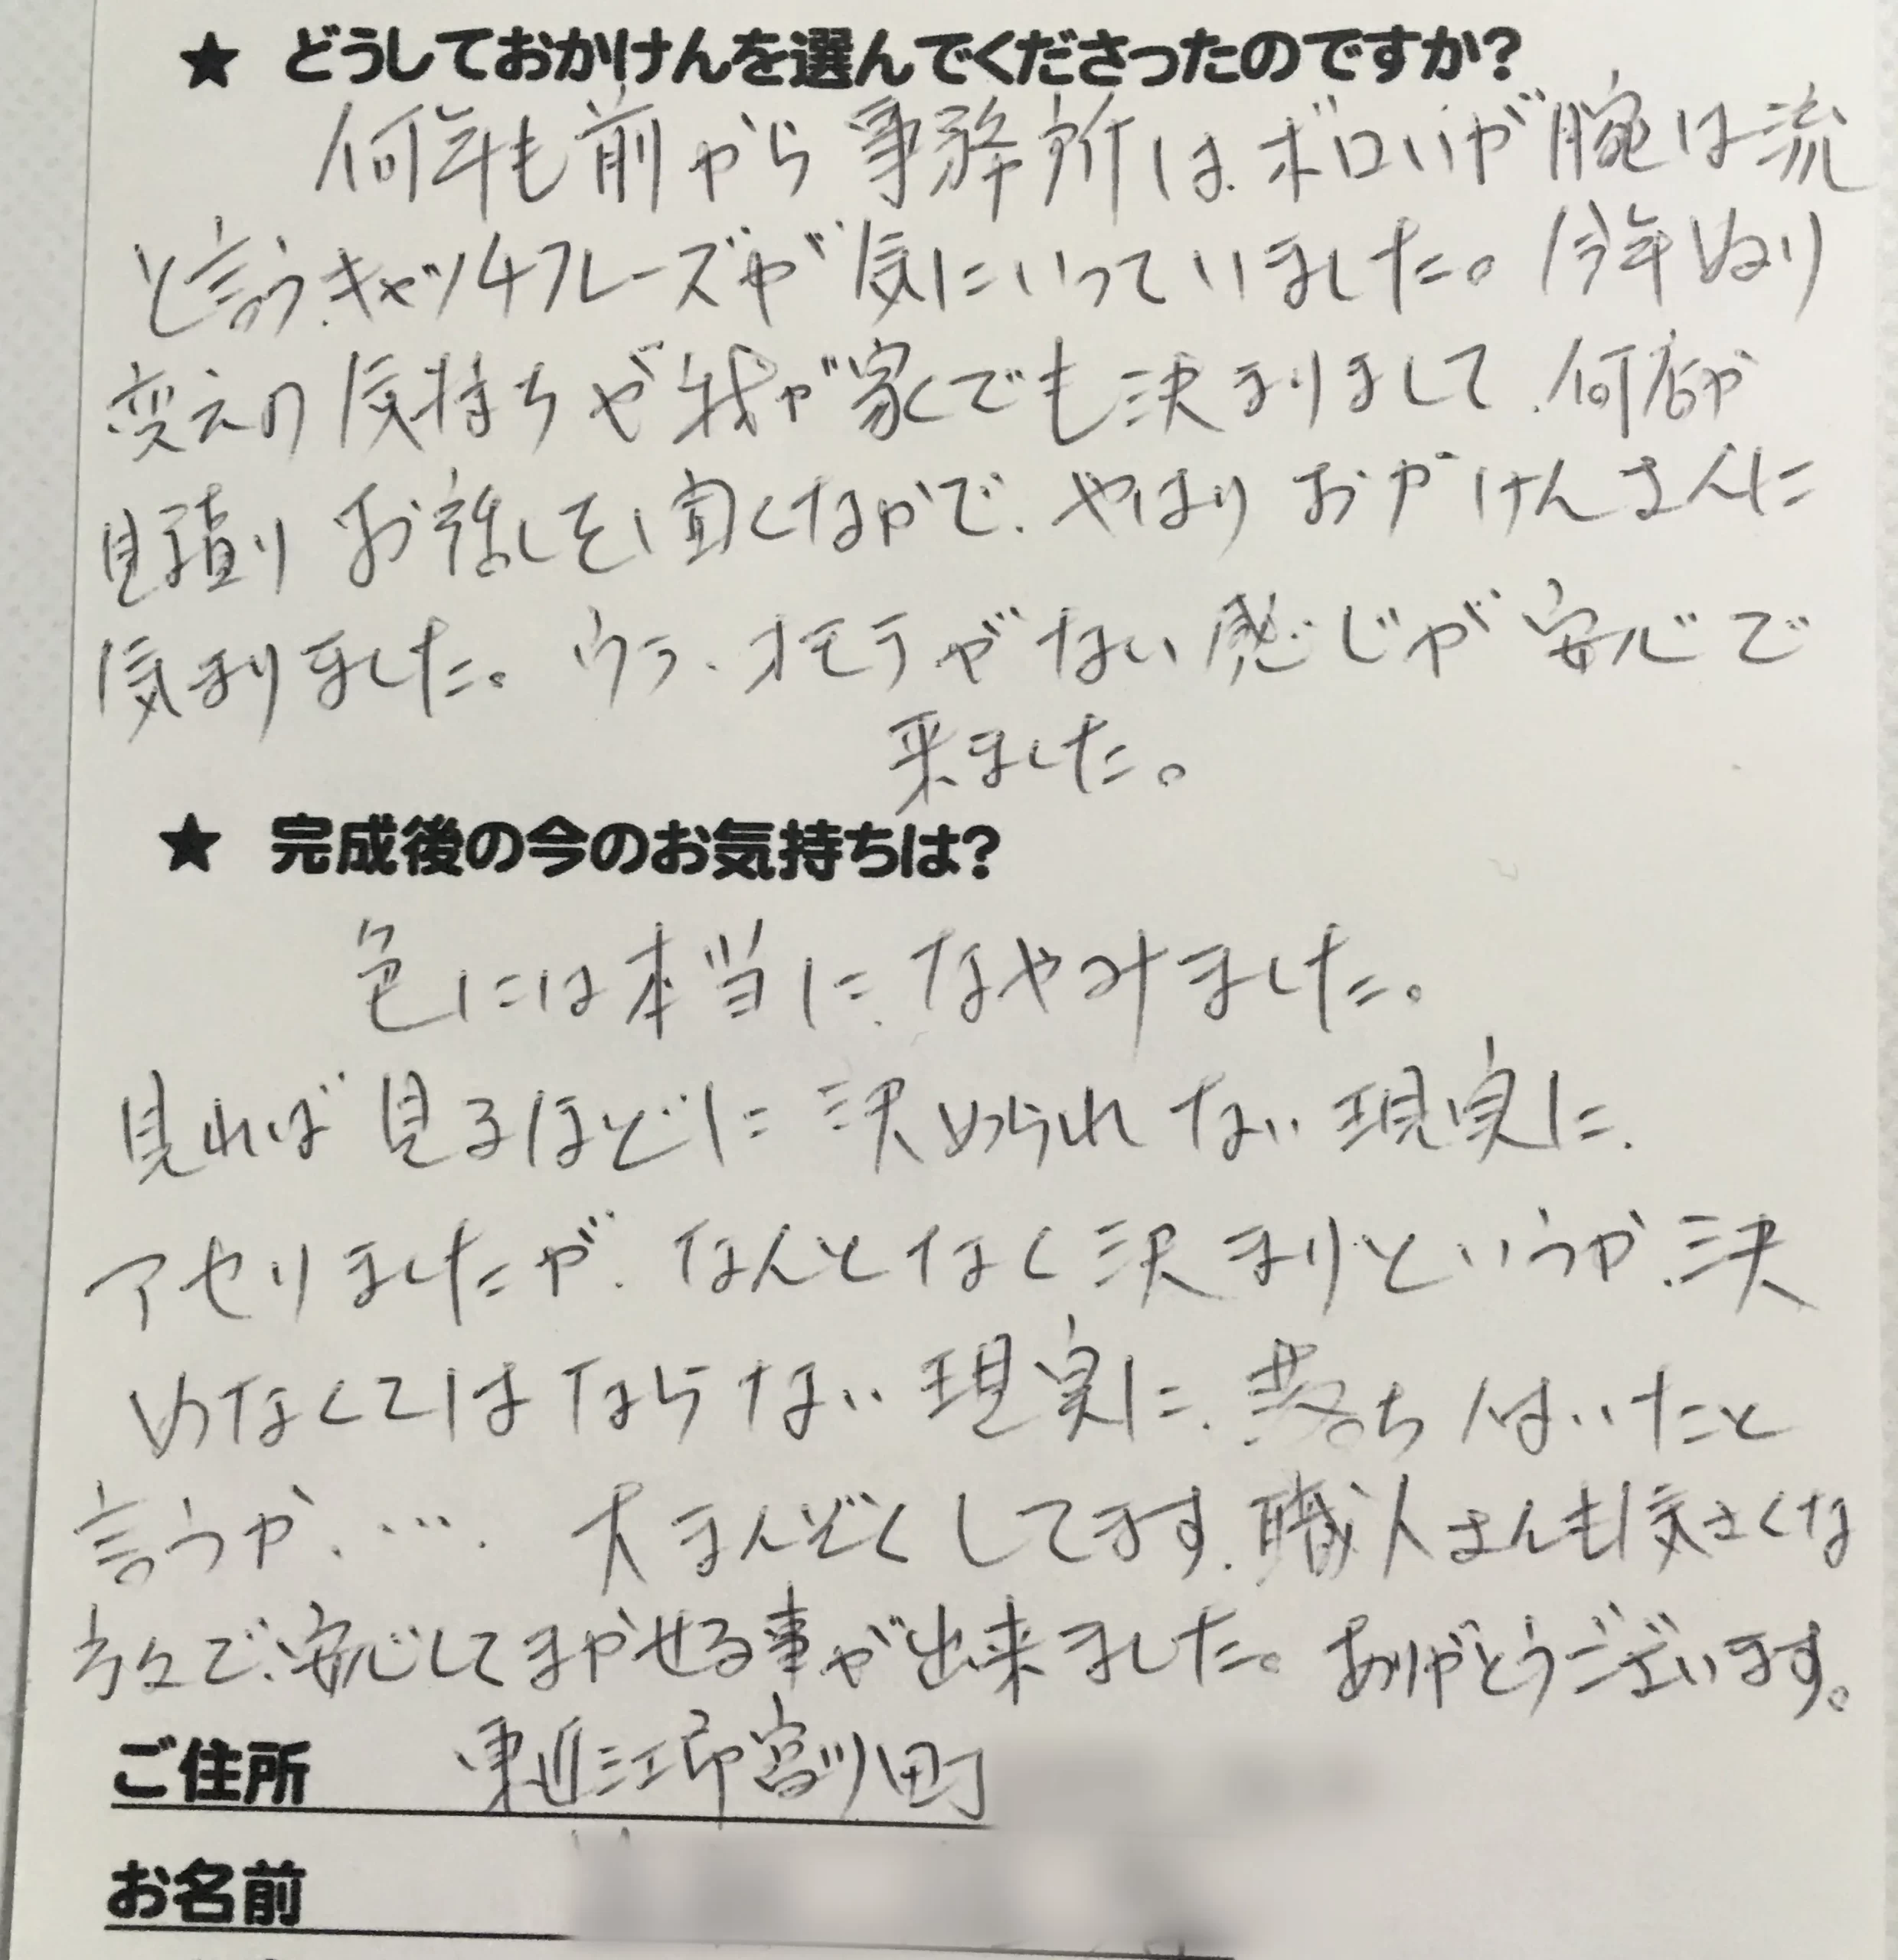 ★ どうしておかけんを選んでくださったのですか?
何年も前から事務所はボロいが腕は流
と言う、キャッチフレーズが気にいっていました。今年ぬり
変えの気持ちが我が家でも決まりまして、何店か
見積り お話しを聞くなかで、やはりおかけんさんに
気まりました。ウラ、オモテがない感じが安心で
来ました。
★ 完成後の今のお気持ちは?
色には本当に、なやみました。
見れば見るほどに決められない現実に、
アセりましたが、なんとなく決まりというか、決
めなくてはならない現実に、落ち付いたと
言うか、…、大まんぞくしてます、職人さんも気さくな
方々で、安心してまかせる事が出来ました。ありがとうございます。
ご住所 東近江市宮川町
お名前